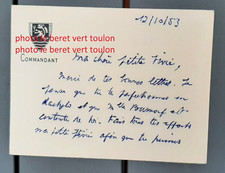 12/10/53
photo le beret vert toulon
COMMANDANT
Ma chère petite Févié,
Merci de tes bonnes lettres. Je
pense que tu te perfectionnes en
et que Mr
contente de toi. Fais tous tes efforts
ma petite Févié afin que tu puisses
photo le beret vert toulon